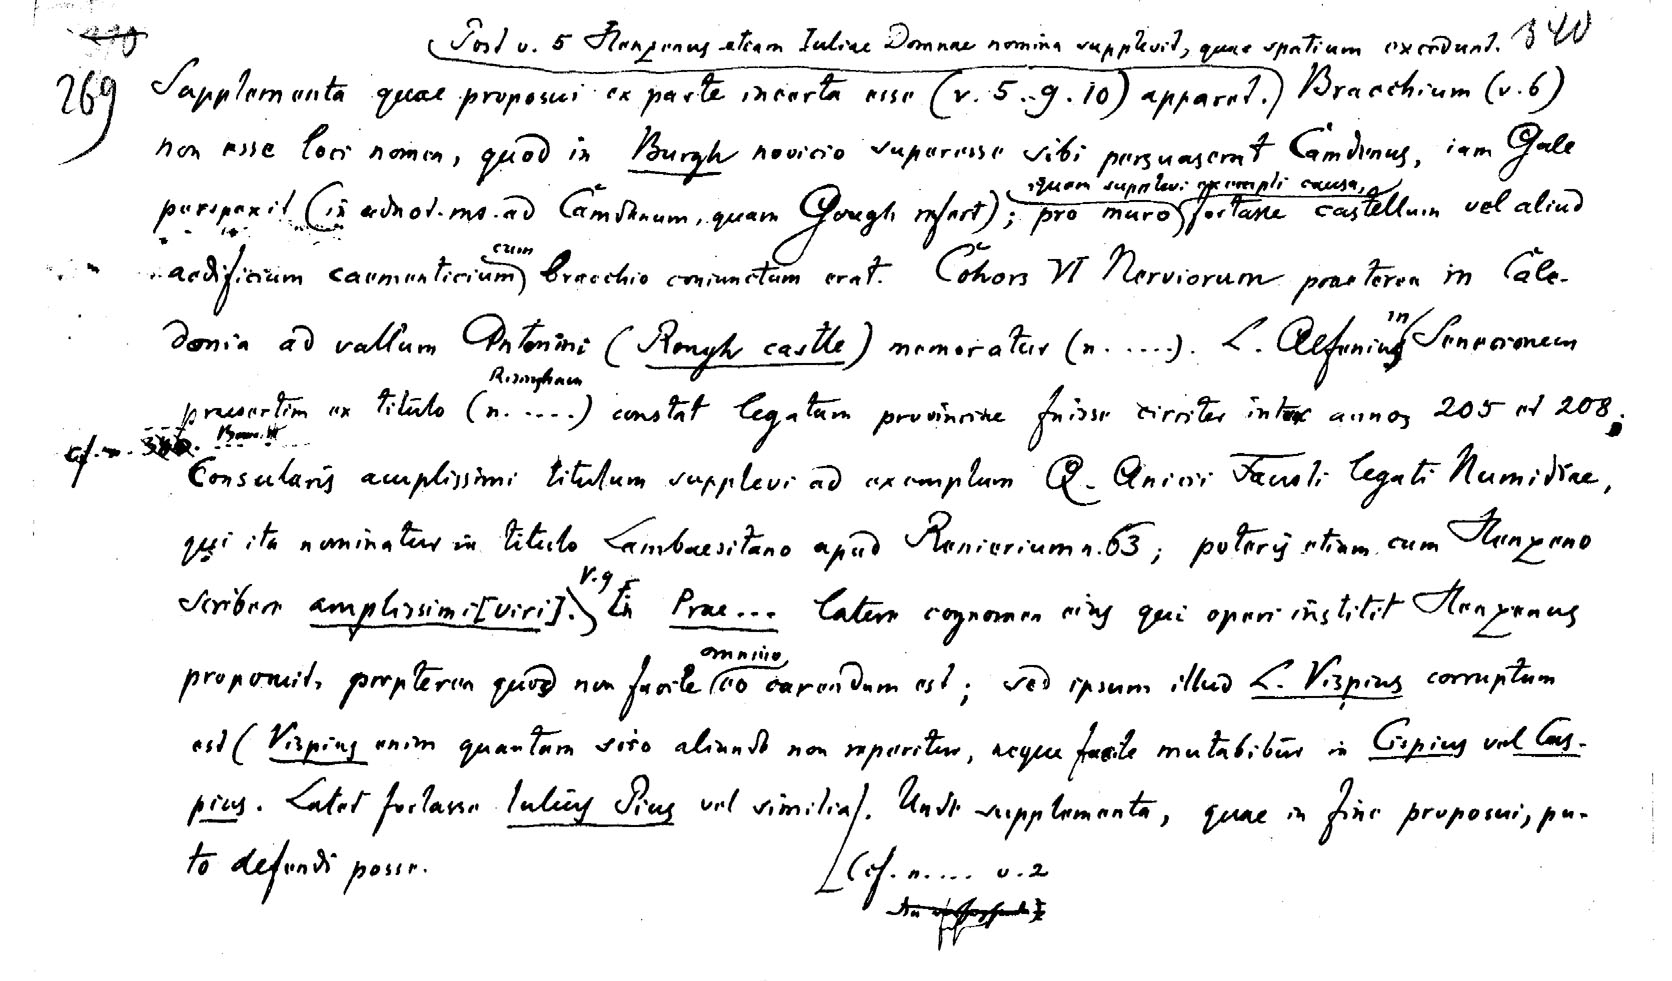 Post v. 5 Henzenus etiam Iuliae Domnae nomina supplevit, quae spatium excedunt. 340
269 Supplementa quae proposui ex parte incerta esse (v. 5. 9. 10) apparet. Bracchium (v. 6)
non esse loci nomen, quod in Burgh novicio superesse sibi persuaserat Camdenus, iam Gale
quam supplevi exempli causa,
perspexit (in adnot. ms. ad Camdenum, quam Gough refert); pro muro fortasse castellum vel aliud
cum
aedificium caementicium bracchio coniunctum erat. Cohors VI Nerviorum praeterea in Cale-
in
donia ad vallum Antonini (Rough castle) memoratur (n. ....). L. Alfenius Senecionem
Risingham
praesertim ex titulo (n. ....) constat legatum provinciae fuisse circiter inter annos 205 et 208;
cf. n.
Consularis amplissimi titulum supplevi ad exemplum Q. Anicii Fausti legati Numidiae,
qui ita nominatur in titulo Lambaesitano apud Renierium n. 63; poteris etiam cum Henzeno
v. 9
scribere amplissimi [viri]. In Prae... latere cognomen eius qui operi institit Henzenus
omnino
proposuit, propterea quod non facile eo carendum est; sed ipsum illud L. Vispius corruptum
est (Vispius enim quantum scio aliunde non reperitur, neque facile mutabitur in Cispius vel Cas-
pius. Latet fortasse Iulius Pius vel similia). Unde supplementa, quae in fine proposui, pu-
to defendi posse.
(cf. n. .... v. 2